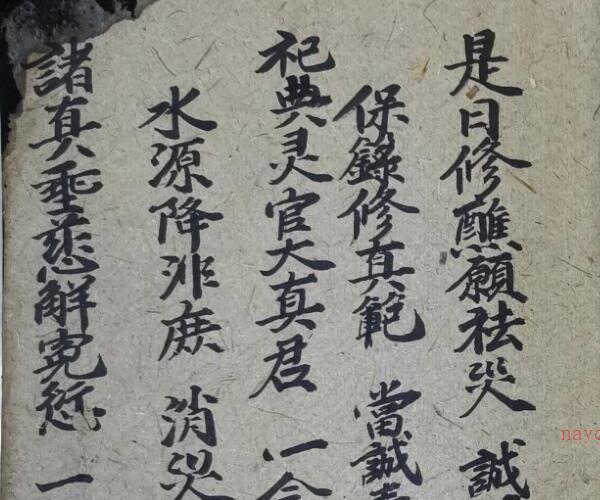 是日修醮願祛災 誠
保錄修真範 當誠
祀典灵官大真君 一
水源降洋庶 消災
諸真垂慈解寃愆 一
nayc